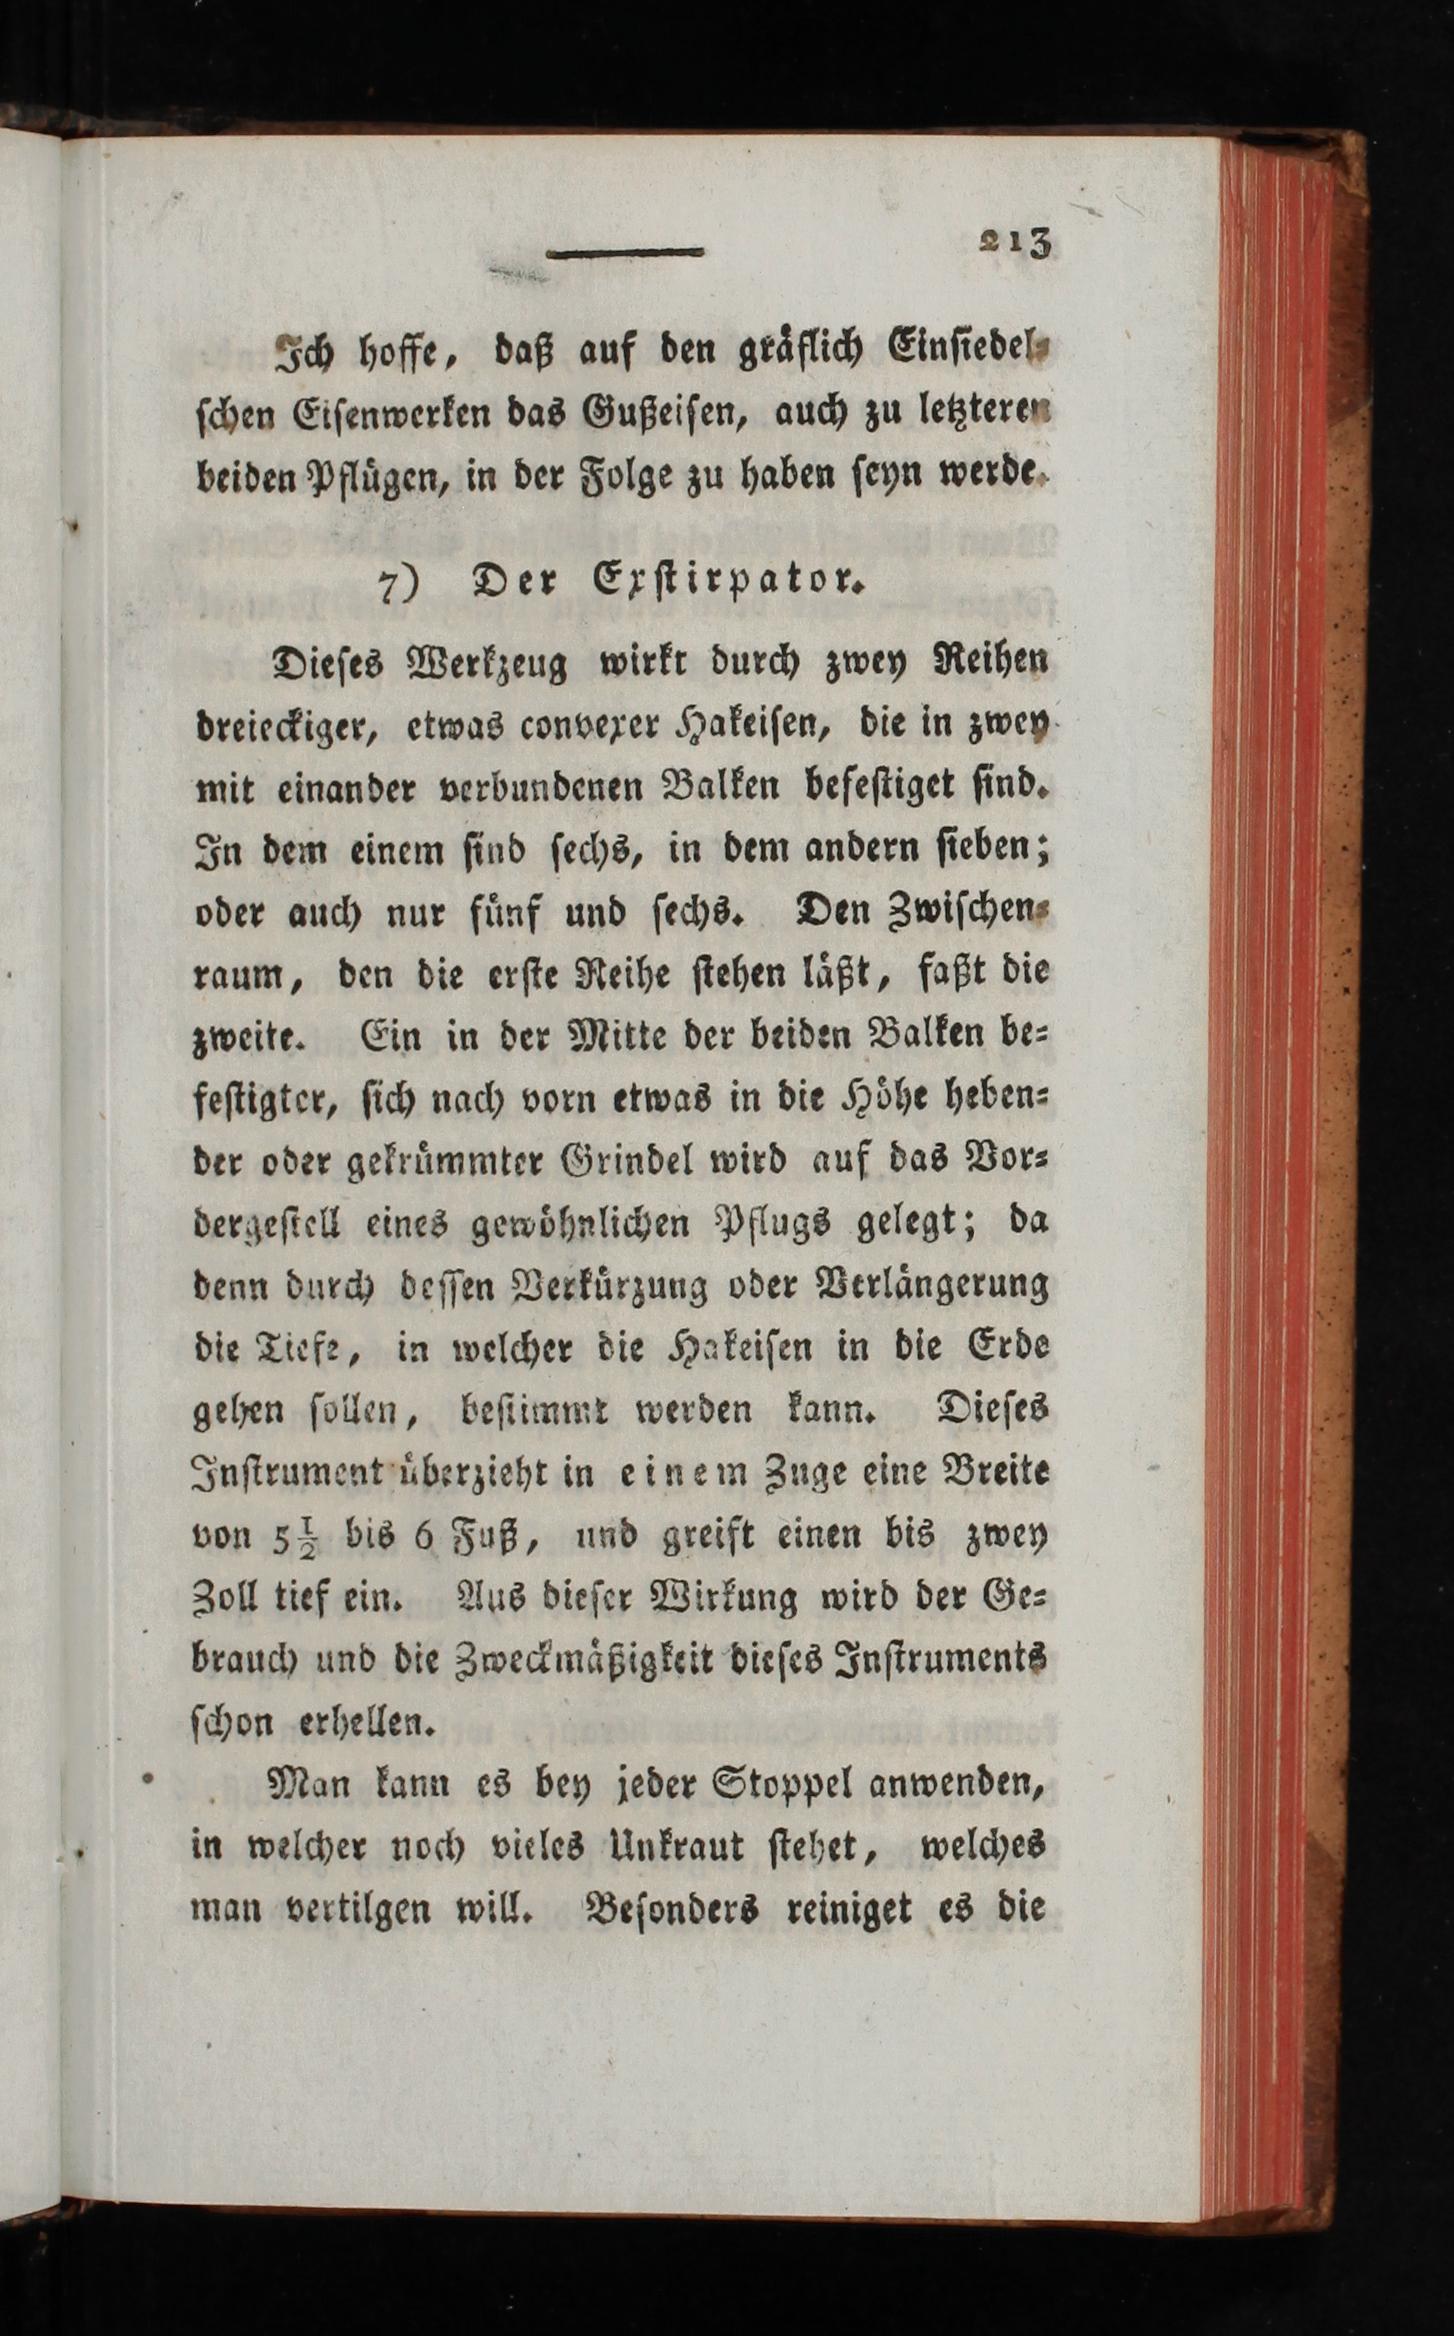 213
Ich hoffe, daß auf den gräflich Einsiedel-
schen Eisenwerken das Gußeisen, auch zu letzteren
beiden Pflügen, in der Folge zu haben seyn werde.
7) Der Exstirpator.
Dieses Werkzeug wirkt durch zwey Reihen
dreieckiger, etwas convexer Hakeisen, die in zwey
mit einander verbundenen Balken befestiget sind.
In dem einem sind sechs, in dem andern sieben;
oder auch nur fünf und sechs. Den Zwischen-
raum, den die erste Reihe stehen läßt, faßt die
zweite. Ein in der Mitte der beiden Balken be-
festigter, sich nach vorn etwas in die Höhe heben-
der oder gekrümmter Grindel wird auf das Vor-
dergestell eines gewöhnlichen Pflugs gelegt; da
denn durch dessen Verkürzung oder Verlängerung
die Tiefe, in welcher die Hakeisen in die Erde
gehen sollen, bestimmt werden kann. Dieses
Instrument überzieht in einem Zuge eine Breite
von 5½ bis 6 Fuß, und greift einen bis zwey
Zoll tief ein. Aus dieser Wirkung wird der Ge-
brauch und die Zweckmäßigkeit dieses Instruments
schon erhellen.
Man kann es bey jeder Stoppel anwenden,
in welcher noch vieles Unkraut stehet, welches
man vertilgen will. Besonders reiniget es die